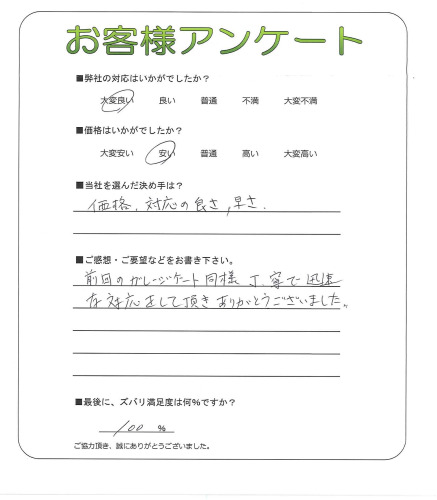 お客様アンケート
■弊社の対応はいかがでしたか？
大変良い 良い 普通 不満 大変不満
■価格はいかがでしたか？
大変安い 安い 普通 高い 大変高い
■当社を選んだ決め手は？
価格、対応の良さ,早さ.
■ご感想・ご要望などをお書き下さい。
前回のガレージゲート同様 丁寧で迅速
な対応をして頂きありがとうございました。
■最後に、ズバリ満足度は何％ですか？
100 ％
ご協力頂き、誠にありがとうございました。